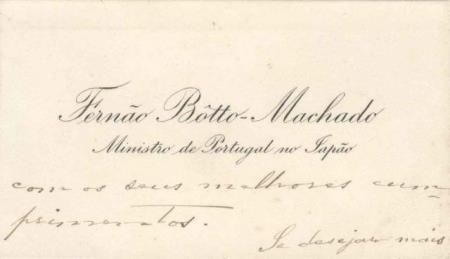 Fernão Bôtto-Machado
Ministro de Portugal no Japão
com os seus melhores cum-
primentos.
Se desejar mais